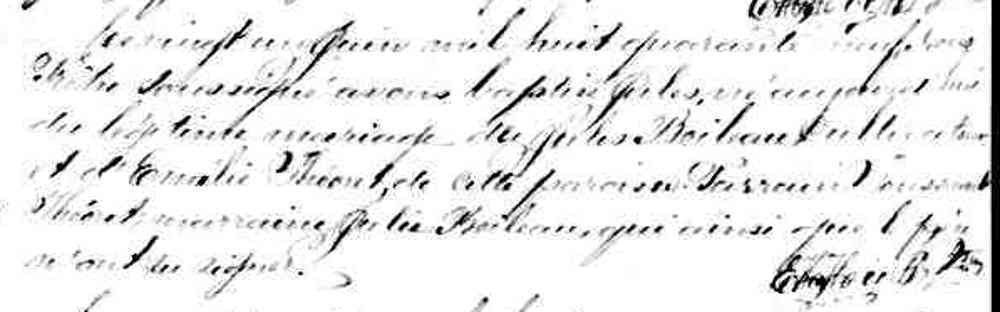 Le vingt un Juin mil huit quarante neuf, nous
Prêtre soussigné avons baptisé Jules, né aujourd'hui
du légitime mariage de Jules Boileau cultivateur
et d'Emélie Théoret, de cette paroisse. Parrain Toussaint
Théoret, marraine Julie Boileau, qui ainsi que le père
n'ont su signer.